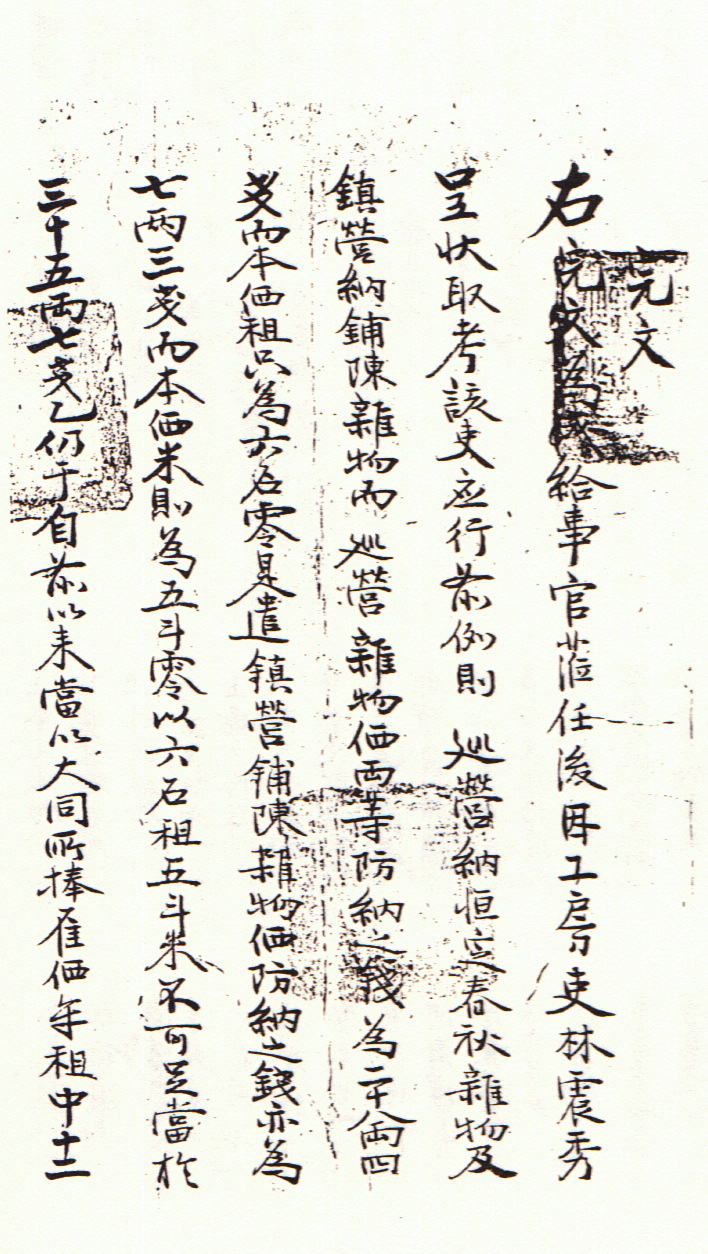 完文
右完文為成給事官莅任後因工房吏林震秀
呈狀取考該吏应行前例則 巡營納恒定春秋雜物及
鎮營納鋪陳雜物而 巡營雜物価両等防納之錢為二十八両四
戔而本価租只為六石零是遣鎮營鋪陳雜物価防納之錢亦為
七両三戔而本価米則為五斗零以六石租五斗米不可足當於
三十五両七戔乙仍于自前以来當以大同所捧雇価年租中十二